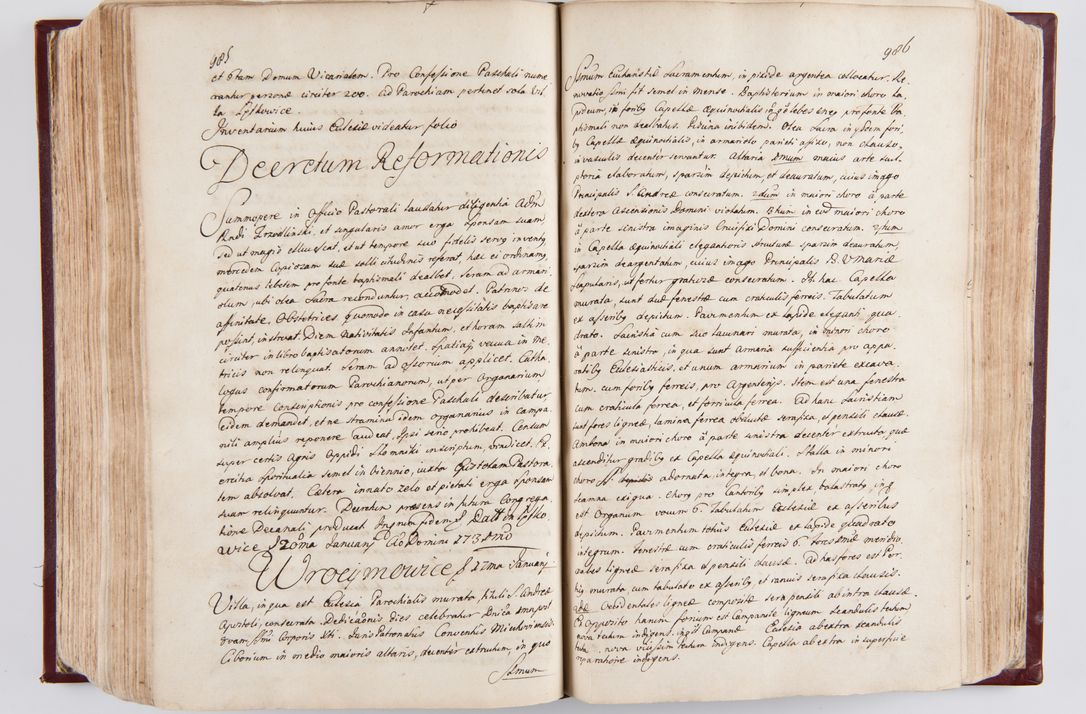 985
et 8tam Domum Vicarialem. Pro Confessione Paschali nume
rantur personæ circiter 200. ad Parochiam pertinet sola Vil
la Lethowice.
Inventarium huius Eclesiæ videatur folio
Decretum Reformationis
Summopere in Officio Pastorali laudatur diligentia Adm
Rndi et singularis amor erga Sponsam suam
sed ut magis ellucescat, et ut tempore suo fidelis servg inventg
mercedem Copiozam suæ sollicitudinis referat, hac ei ordinamg
quatenus lebetem pro fonte baptismali dealbet. Seram ad armari,
olum ubi olea Sacra reconduntur, accomodet. Patrinos de
affinitate, Obstetrices quomodo in casu necessitatis baptisare
possint, instruat. Diem Nativitatis Infantum, et horam saltim
circiter in libro baptisatorum annotet. Spatia vacua in me,
tricis non relinquat. Seram ad Ostorium applicet. Catha,
logus confirmatorum Parochianorum, ut per Organarium
tempore Conscriptionis pro confessione Paschali describatur
eidem demandet, et ne stramina idem organarius in campa,
nili amplius reponere audeat, Ipsi serio prohibeat. Censum
super certis agris Oppidi Slomniki inscriptum, vendicet. Ex
ercitia spiritualia semel in biennio, iuxta Epistolam Pastora,
lem absolvat. Cætera innato zelo et pietati erga Sponsam
suam relinquuntur. Decretum præsens in futura Congrega,
tione Decanali producat. In quorum fidem Datt in Lesko
wice 20ma Januarij Ao Domini 1731mo
Wrocimowice 17ma Januarij
Villa, in qua est Eclesia Parochialis murata tituli S. Andreæ
Apostoli, consecrata. Dedicaonis dies celebratur Dnica
8vam SSmi Corporis Xti. Juris Patronatus Conventus Miechoviensis
Ciborium in medio maioris altaris, decenter extructum, in quo
SSmum
986
SSmum Eucharistiæ Sacramentum, in pixide argentea collocatur. Re,
novatio fieri sit semel in mense. Baptisterium in maiori choro la,
pideum, in foribg Capellæ æquinoctialis in quo lebes æneg pro fonte ba,
ptismali non dealbatus. Piscina inibidem. Olea Sacra in ijsdem fori,
bg Capellæ æquinoctialis, in armariolo parieti affixo, non clauso,
in vasculis decenter servantur. Altaria Imum maius arte scul,
ptoria elaboratum, sparsim depictum, et deauratum, cuius imago
Principalis S. Andreæ consecratum. 2dum in maiori choro à parte
dextera Ascensionis Domini violatum. 3tium in eod maiori choro
à parte sinistra imaginis Crucifixi Domini consecratum. 4tum
in Capella æquinoctiali elegantioris structuræ sparsim deauratum,
sparsim deargentatum, cuius imago Principalis B. V. Mariæ
Scapularis, ut fertur gratiosæ consecratum. In hac Capella
murata sunt duæ fenestræ cum craticulis ferreis. Tabulatum
ex asseribg depictum. Pavimentum ex lapide eleganti qua,
drato. Sacristia cum suo lacunari murata, in minori choro
à parte sinistra, in qua sunt Armaria sufficientia pro appa,
ratibg Eclesiasticis, et unum armarium in pariete excava,
tum, cum foribg ferreis, pro Argenterijs. Item est una fenestra
cum craticula ferrea, et fornicula ferrea. Ad hanc Sacristiam
sunt fores ligneæ, lamina ferrea obductæ sera fixa, et pensili clausæ.
Ambona in maiori choro à parte sinistra decenter extructa, quæ
ascenditur gradibg ex Capella æquinoctiali. Stalla in minori
choro adornata, integra, et bona. In maiori choro
scamna exigua. Chorg pro Cantoribg simplex balastratg, in quo
est Organum vocum 6. Tabulatum Eclesiæ ex asseribus
depictum. Pavimentum totius Eclesiæ ex lapide quadrato
integrum. Fenestræ cum craticulis ferreis 6. Fores duæ meridio,
nales ligneæ sera fixa et pensili clausæ. Ad has fores est Por,
ticg murata cum tabulato ex asseribg et ianuis sera fixa clausis.
Aliæ Occidentales ligneæ compositæ sera pensili ab intra clausæ.
Ex opposito harum forium est Campanile ligneum scandulis tectum
nova tectura indigens. in quo Campanæ Eclesia ab extra scandulis
tecta, nova vicissim tectura indigens. Capella ab extra in superficie
reparatione indigens.